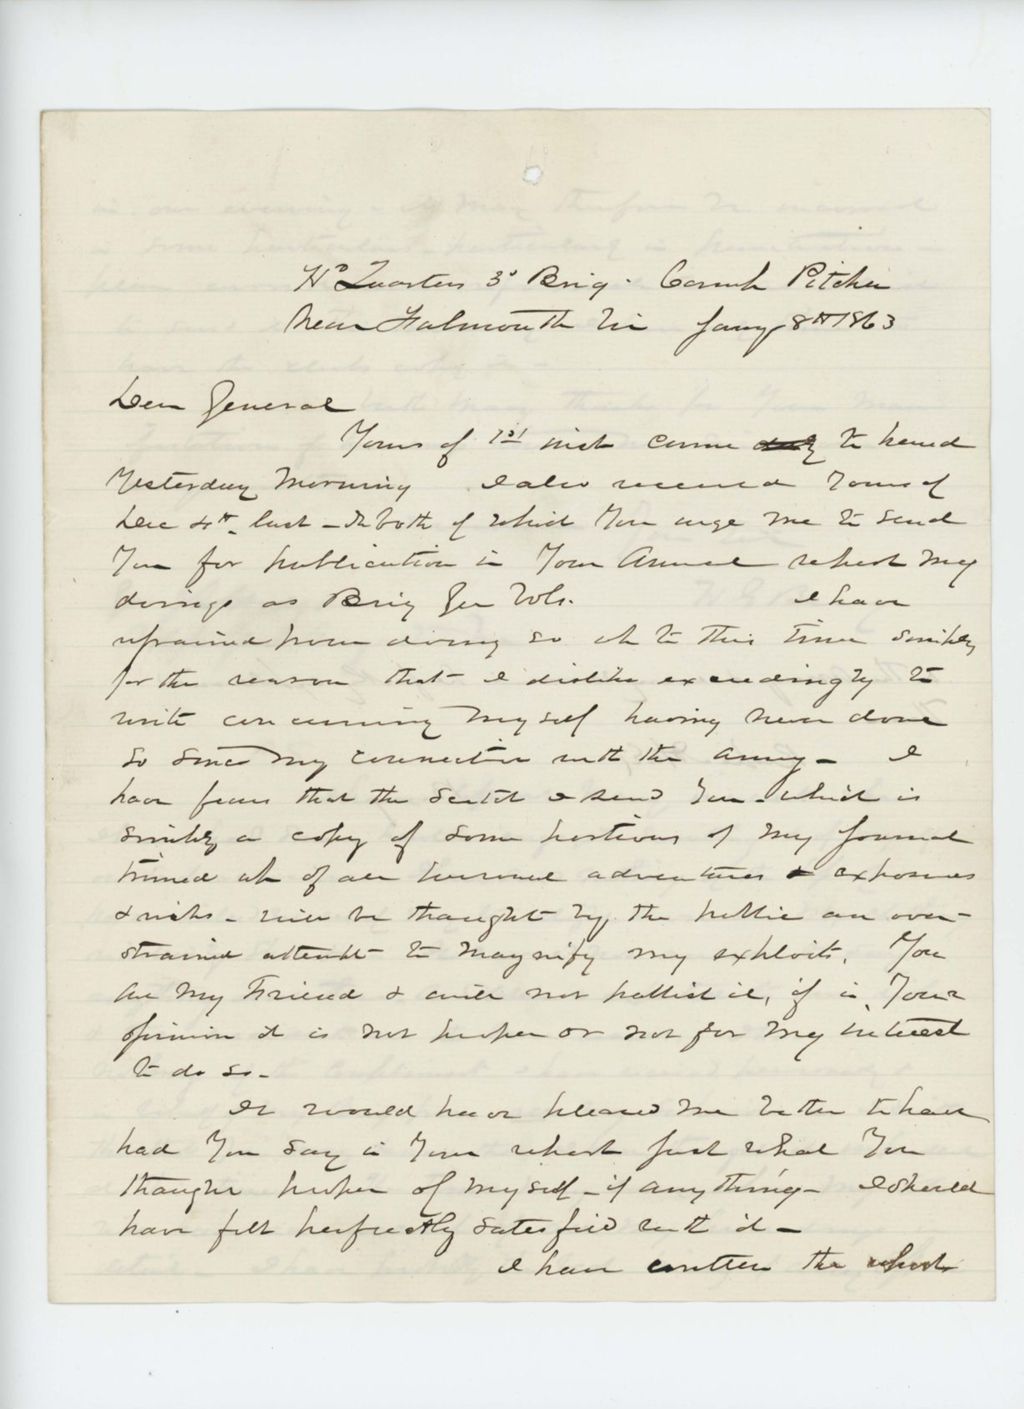 Hd Quarters 3d Brig. Camp Pitcher
Near Falmouth Va Jany 8th 1863
Dear General
Yours of 1st inst came only to hand
Yesterday Morning I also received Yours of
Dec 4th last - In both of which You urge me to send
You for publication in Your Annual report my
doings as Brig Gen Vols. I have
refrained from doing so up to this time simply
for the reason that I dislike exceedingly to
write concerning myself having never done
so since my connection with the army - I
have fears that the sketch I send You - which is
simply a copy of some portions of my Journal
trimed up of all personal adventures & exposures
& risks - will be thought by the public an over-
strained attempt to magnify my exploits. You
are my Friend & will not publish it, if in Your
opinion it is not proper or not for my interest
to do so -
It would have pleased me better to have
had You say in Your report just what You
thought proper of myself - if anything - I should
have felt perfectly satisfied with it -
I have written the whole